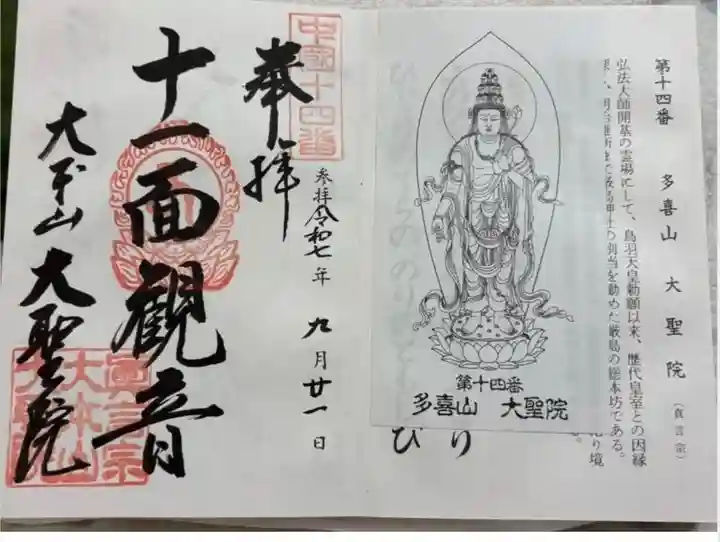 第十四番　多喜山　大聖院（真言宗）
弘法大師開基の霊場にして、鳥羽天皇勅願以来、歴代皇室との因縁
明治維新まで厳島神社の別当を勤めた厳島の総本坊である。
り境
第十四番
多喜山　大聖院
り
び
中国十四番
奉拝
参拝令和七年九月廿一日
十一面観音
大本山大聖院
真言宗
大本山